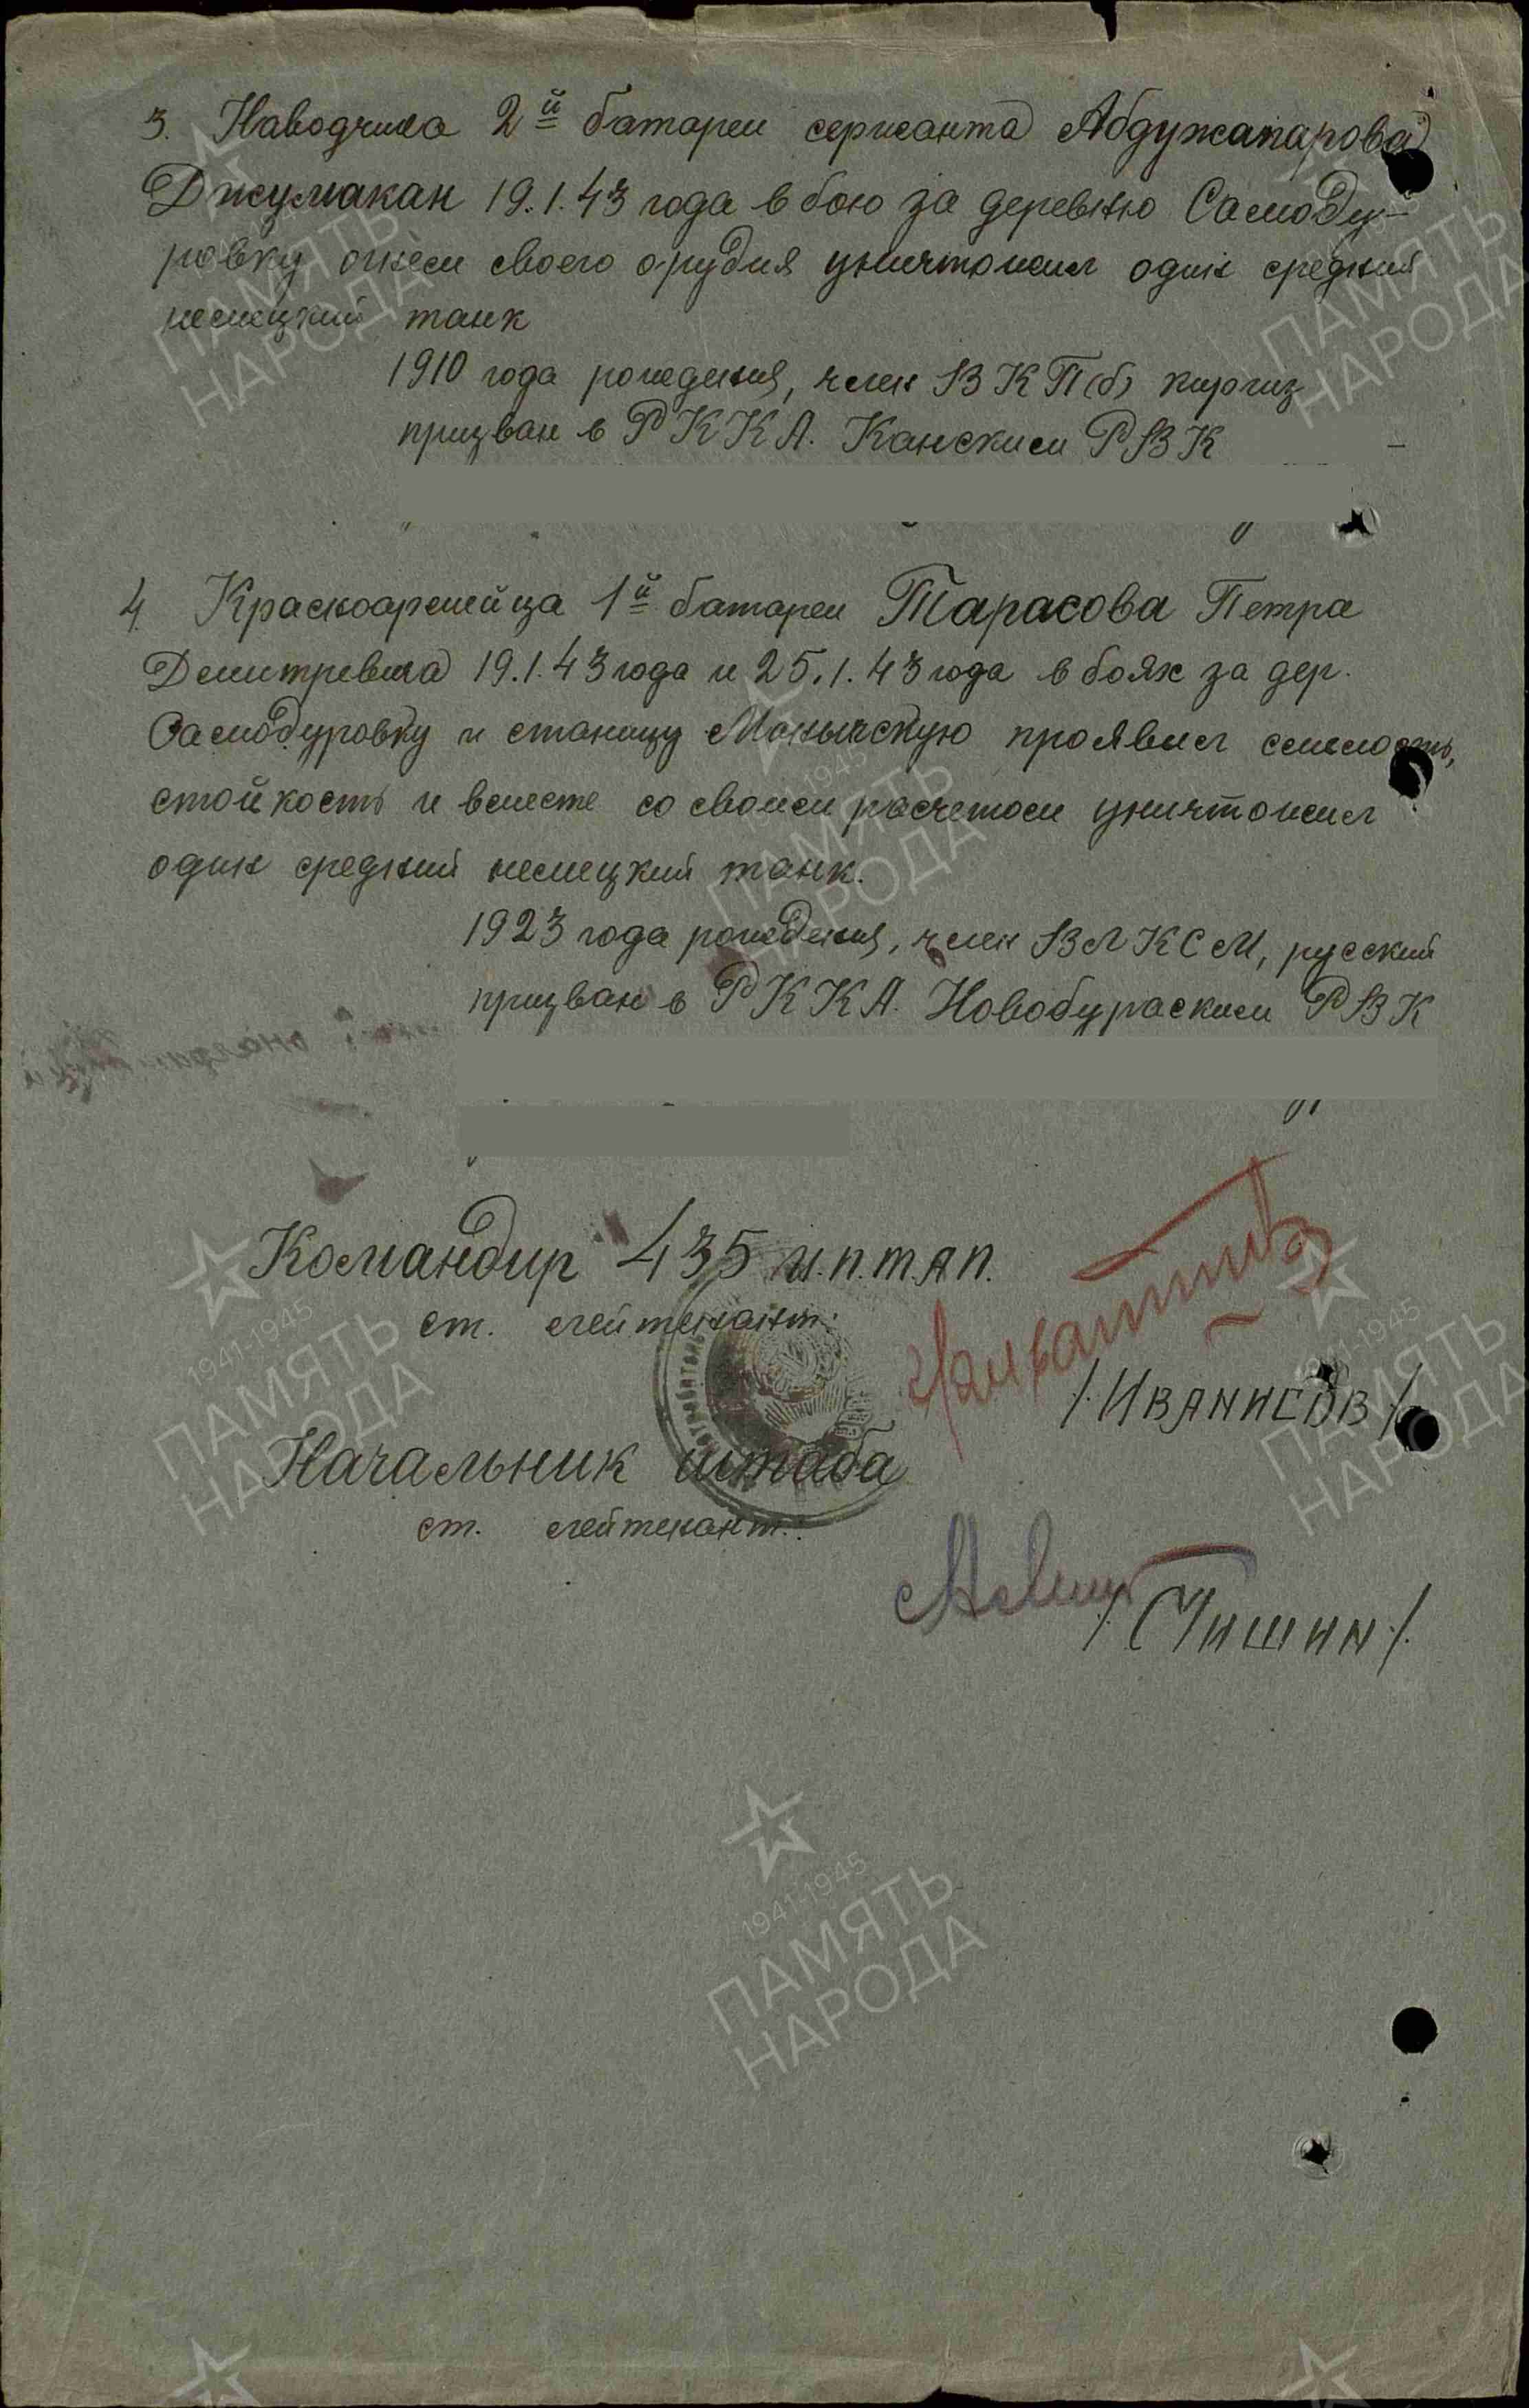 3. Наводчика 2й батареи сержанта Абдужапарова
Джумакан 19.1.43 года в бою за деревню Самоду-
ровку огнем своего орудия уничтожил один средний
немецкий танк
1910 года рождения, член ВКП(б) киргиз
призван в РККА. Канским РВК
4. Красноармейца 1й батареи Тарасова Петра
Дмитревича 19.1.43 года и 25.1.43 года в боях за дер.
Самодуровку и станицу Манычскую проявил смелость,
стойкость и вместе со своим расчетом уничтожил
один средний немецкий танк.
1923 года рождения, член ВЛКСМ, русский
призван в РККА. Новобураским РВК
Командир 435 и.п.т.ап.
ст. лейтенант:
/ИВАНИСОВ/
Начальник штаба
ст. лейтенант:
/Тишин/.
1941-1945
ПАМЯТЬ
НАРОДА